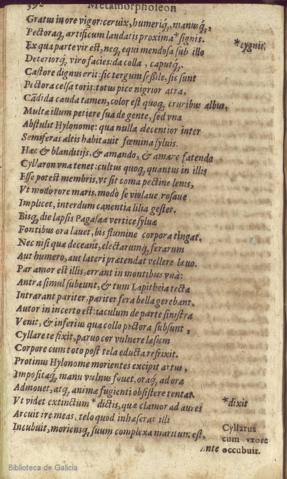 392 Metamorpholeon
Gratus in ore vigor: ceruix, humeriq́, manusq́,
Pectoraq́, artificum laudatis proxima * signis. *cygnis.
Ex qua parte vir est, neq, equi mendosa sub illo
Deteriorq́, viro facies: da colla, caputq́,
Castore dignus erit: sic tergum sessile, sic sunt
Pectora celsa toris: totus pice nigrior atra,
Cādida cauda tamen, color est quoq, cruribus albus,
Multæ illum petiere sua de gente, sed vna
Abstulit Hylonome: qua nulla decentior inter
Semiferas altis habitauit fœmina syluis.
Hæc & blanditijs, & amando, & amare fatendo
Cyllaron vna tenet: cultus quoq, quantus in illis
Esse potest membris, vt sit coma pectine lenis,
Vt modo rore maris, modo se violaue rosaue
Implicet, interdum canentia lilia gestet.
Bisq, die lapsis Pagasææ vertice sylua
Fontibus ora lauet, bis flumine corpora tingat.
Nec nisi quæ deceant, electarumq́, ferarum
Aut humero, aut lateri prætendat vellera læuo.
Par amor est illis, errant in montibus vna:
Antra simul subeunt, & tum Lapitheia tecta
Intrarant pariter, pariter fera bella gerebant.
Autor in incerto est: iaculum de parte sinistra
Venit, & inferius quam collo pectora subsunt,
Cyllare te fixit, paruo cor vulnere læsum
Corpore cum toto post tela educta refrixit.
Protinus Hylonome morientes excipit artus,
Impositaq́, manu vulnus fouet, oraq́, ad ora
Admouet, atq, animæ fugienti obsistere tentat.
Vt videt extinctum * dictis, quæ clamor ad aures *dixit
Arcuit ire meas, telo quod inhæserat illi
Incubuit, moriensq́, suum complexa maritum est, Cyllarus
cum vxore
Ante occubuit.
Biblioteca de Galicia